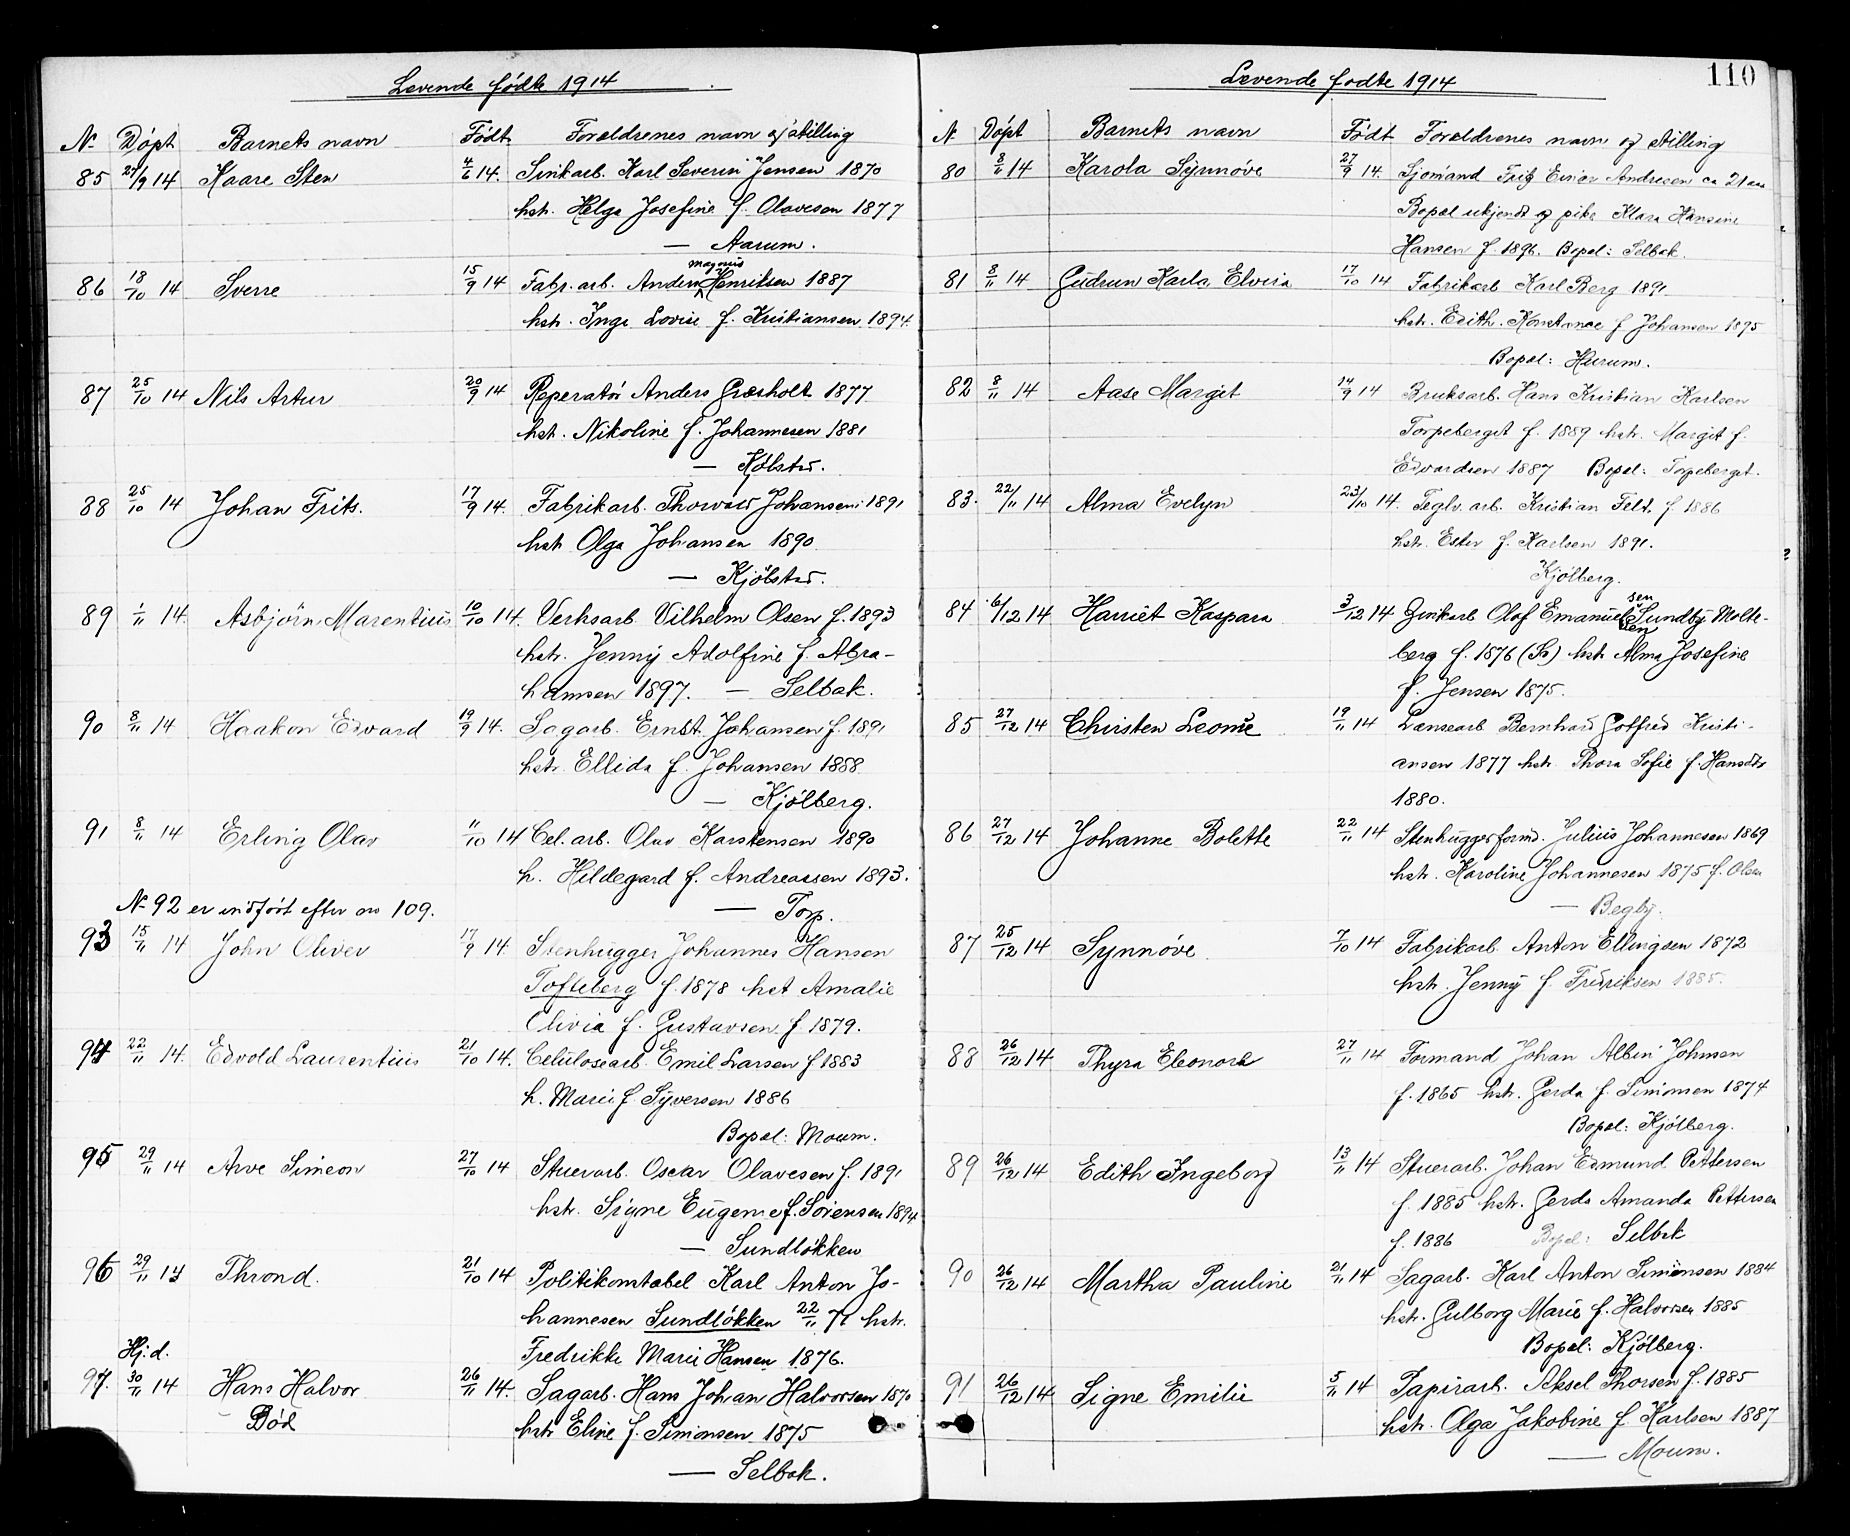 Levende fødte 1914
N. Døpt Barnets navn Født. Foreldrenes navn og stilling
85 27/9 14 Kaare Sten 4/6 14. Sinkarb. Karl Severin Jensen 1870
hstr. Helga Josefine f. Olavesen 1877
— Aarum.
magnus
86 18/10 14 Sverre 15/9 14 Fabr. arb. Anders Henriksen 1887
hstr. Inga Lovise f. Kristiansen 1894
87 25/10 14 Nils Artur 20/9 14 Reperatør Anders Græsholt 1877
hst. Nikoline f. Johannesen 1881
— Kjølstad.
88 25/10 14 Johan Frits. 17/9 14. Fabrikarb. Thorvald Johansen 1891
hst Olga Johansen 1890
— Kjølstad.
89 1/11 14. Asbjørn Marentius 10/10 14. Verksarb Vilhelm Olsen f. 1893
hstr. Jenny Adolfine f. Abra-
hamsen 1897. — Selbak.
90 8/11 14 Haakon Edvard 19/9 14. Sagarb. Ernst Johansen f. 1891
hstr. Ellida f. Johansen 1888
— Kjølberg.
91 8/11 14 Erling Olav 11/10 14 Cel. arb. Olav Karstensen 1890
h. Hildegard f. Andreassen 1893.
— Torp.
N. 92 er indført efter no 109.
93 15/11 14 John Oliver 17/9 14. Stenhugger Johannes Hansen
Tofteberg f. 1878 hst Amalie
Olivia f. Gustavsen f. 1879.
94 22/11 14. Edvold Laurentius 21/10 14. Celulosearb. Emil Larsen f 1883
h. Marie f. Syversen 1886
Bopæl: Moum.
95 29/11 14 Arve Simeon 27/10 14 Stuerarb. Oscar Olavesen f. 1891
hstr. Signe Eugenie f. Sørensen 1894
— Sundløkken
96 29/11 14 Thrond. 21/10 14 Politikonstabel Karl Anton Jo-
hannesen Sundløkken 22/11 71 hstr.
Fredrikke Marie Hansen 1876.
Hj.d.
97. 30/11 14 Hans Halvor 26/11 14. Sagarb. Hans Johan Halvorsen 1870
Død hstr Eline f. Simonsen 1875
— Selbak.
110
Levende fødte 1914
N. Døpt Barnets navn Født Foreldrenes navn og stilling
80 8/11 14 Karola Synnøve 27/9 14. Sjømand Fritz Einar Andresen ca 21 aar
Bopæl ukjendt og pike Klara Hansine
Hansen f. 1896. Bopæl: Selbak.
81 8/11 14 Gudrun Karla Elvira 17/10 14 Fabrikarb Karl Berg 1891
hst. Edith Konstance f Johansen 1895
Bopæl: Hurum.
82 8/11 14 Aase Margit 14/9 14 Bruksarb. Hans Kristian Karlsen
Torpeberget f. 1889 hstr. Margit f.
Edvardsen 1887 Bopæl: Torpeberget.
83. 22/11 14 Alma Evelyn 23/10 14. Teglv. arb. Kristian Feldt f 1886
hstr. Ester f. Karlsen 1891.
Kjølberg.
sen
84 6/12 14 Harriet Kaspara 3/12 14 Zinkarb Olaf Emanuel Sundby Molte-
berg f. 1876 (Sv) hstr Alma Josefine
f. Jensen 1875.
85 27/12 14 Christen Leonie 19/11 14 Lænsearb Bernhard Gotfred Kristi-
ansen 1877 hstr. Thora Sofie f. Hansdtr
1880.
86 27/12 14 Johanne Bolette 22/11 14 Stenhuggerformd. Julius Johannesen 1869
hstr. Karoline Johannesen 1875 f. Olsen
— Begby.
87 25/12 14 Synnøve 7/10 14 Fabrikarb. Anton Ellingsen 1872
hstr. Jenny f. Fredriksen 1885.
88 26/12 14 Thyra Eleonora 27/11 14 Formand Johan Albin Johnsen
f. 1865 hstr. Gerda f. Simonsen 1874
Bopæl: Kjølberg.
89 26/12 14 Edith Ingeborg 13/11 14 Stuerarb. Johan Edmund Pettersen
f. 1885 hstr. Gerda Amanda Pettersen
f. 1886 Bopæl: Selbak
90 26/12 14 Martha Pauline 21/11 14 Sagarb. Karl Anton Simonsen 1884
hstr. Gulborg Marie f. Halvorsen 1885
Bopæl: Kjølberg.
91 26/12 14 Signe Emilie 5/11 14 Papirarb. Aksel Thorsen f. 1885
hstr. Olga Jakobine f Karlsen 1887
— Moum.